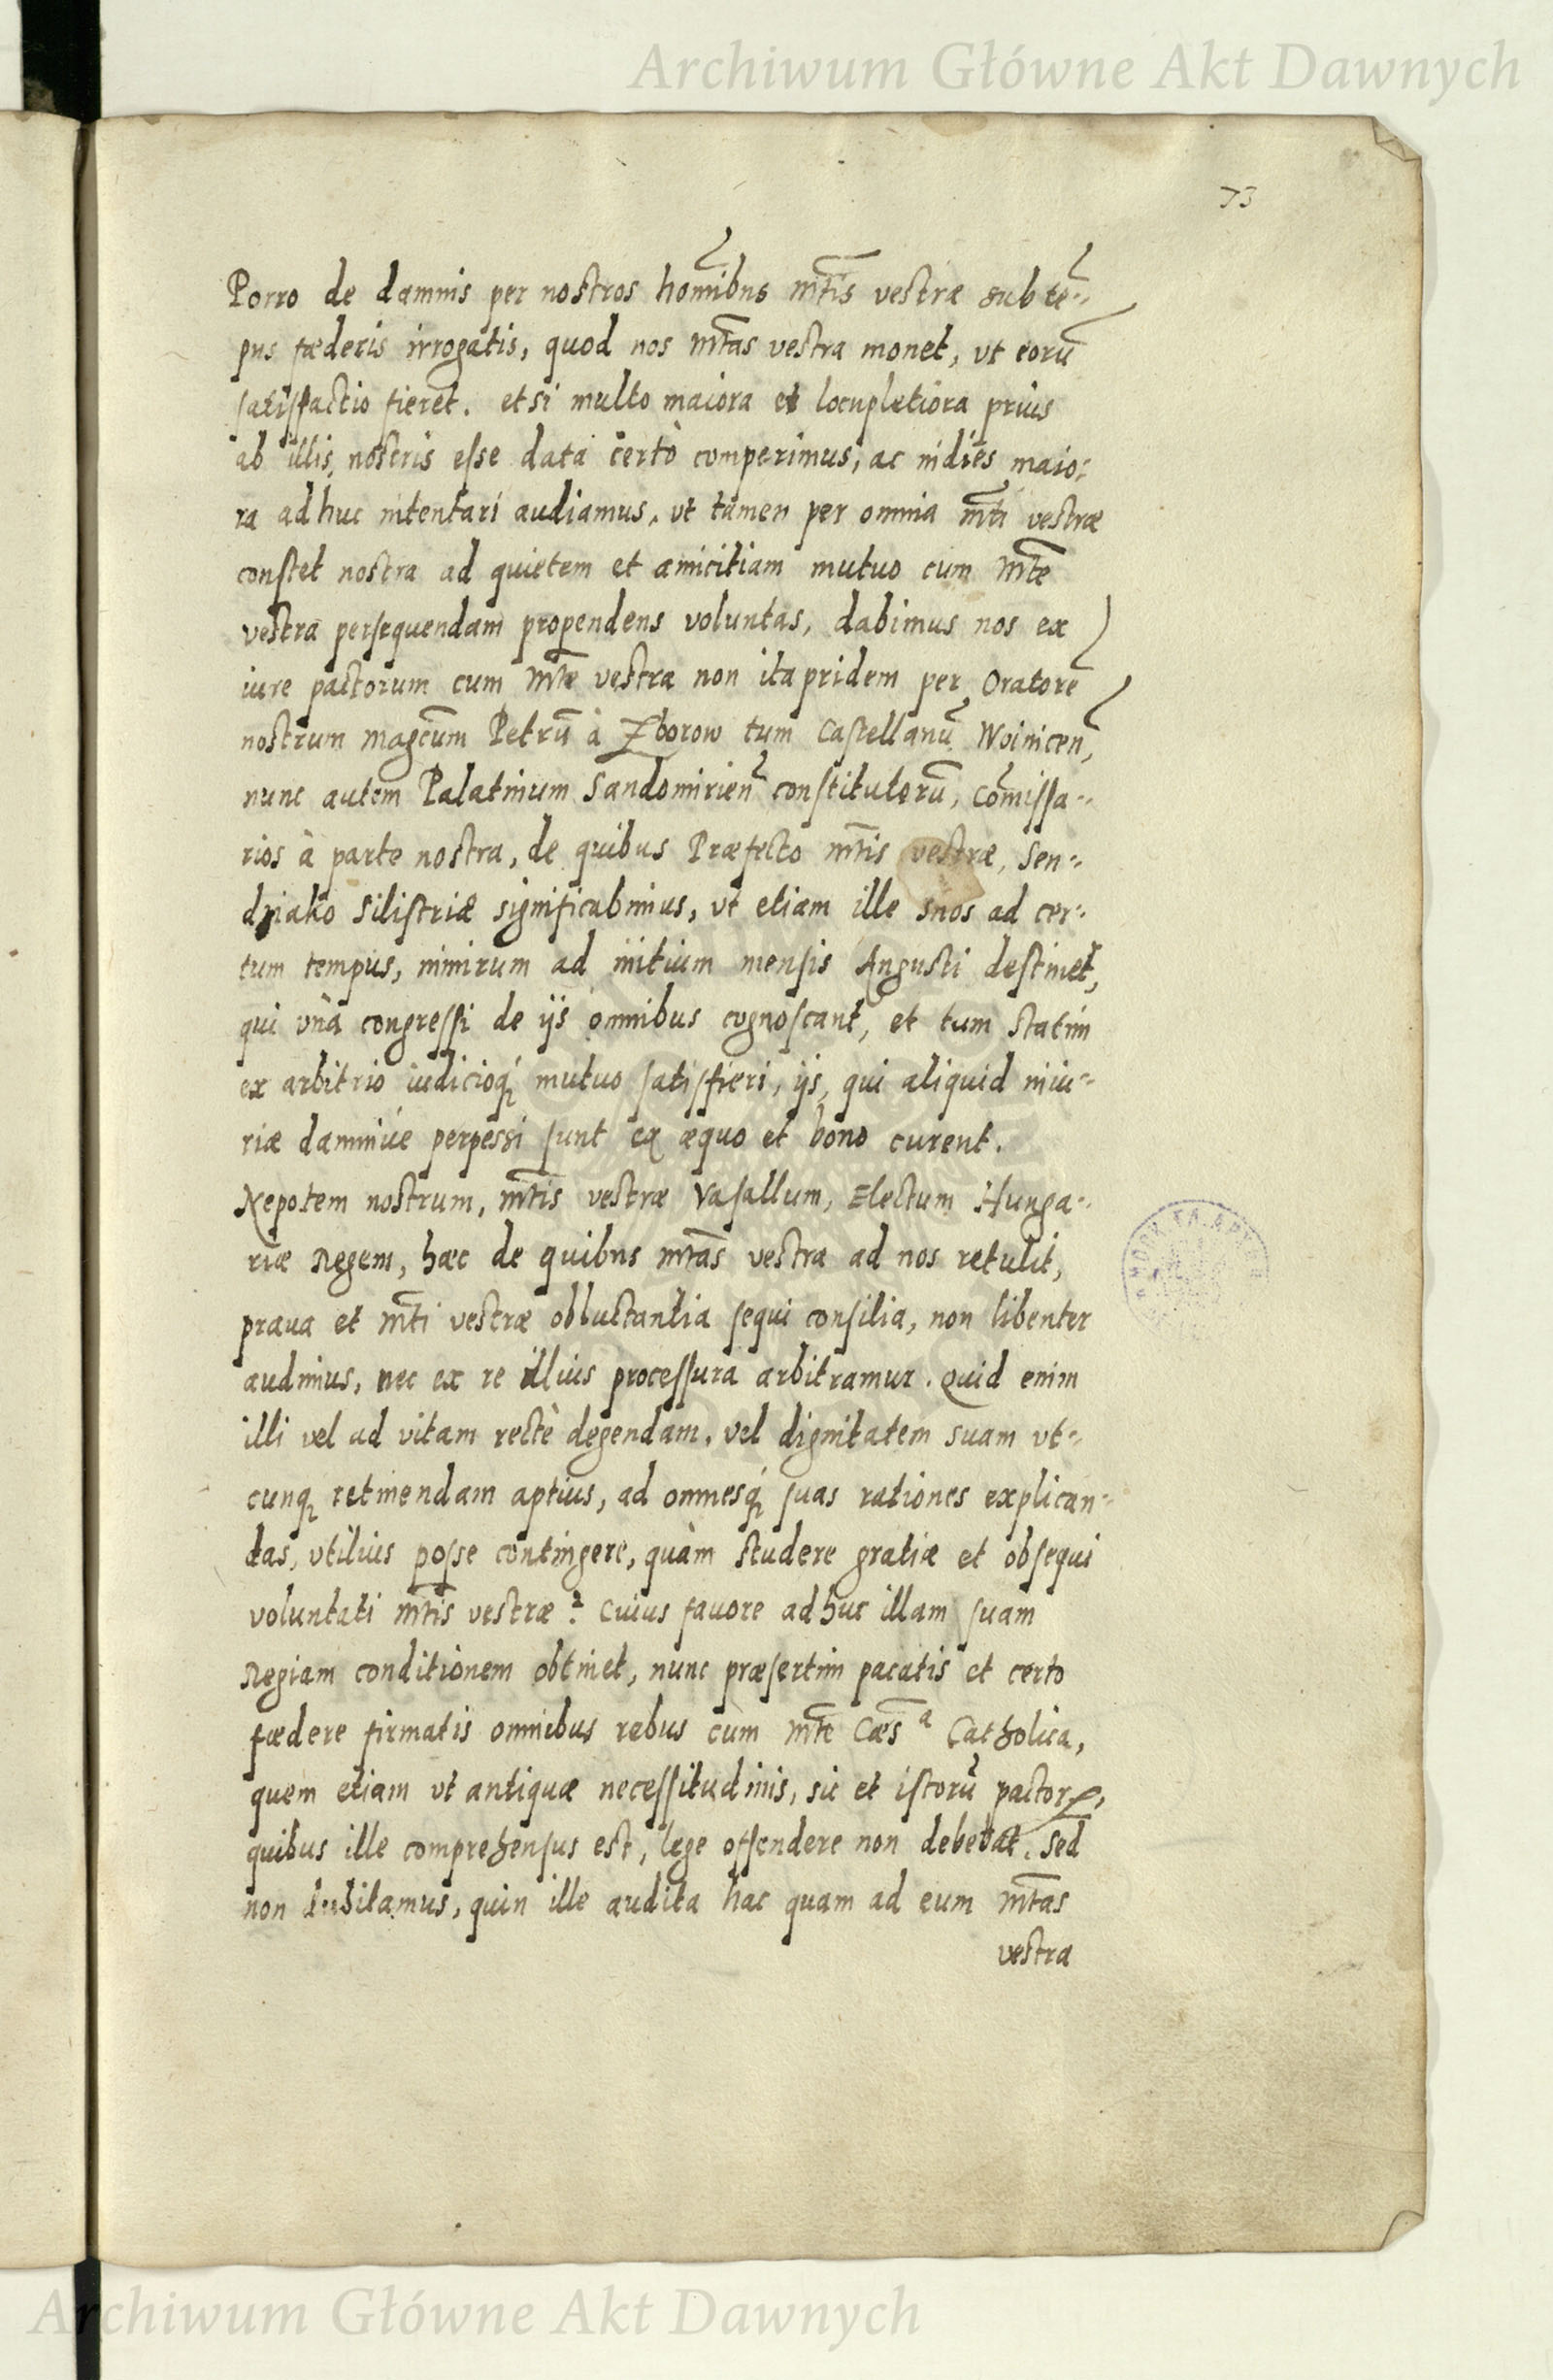 Archiwum Główne Akt Dawnych
73
Porro de damnis per nostros hominibus mtis vestræ sub tē=
pus fœderis irrogatis, quod nos mtas vestra monet, vt eorū
satisfactio fieret. etsi multo maiora et locupletiora prius
ab illis nostris esse data certò comperimus, ac indies maio:
ra adhuc intentari audiamus, vt tamen per omnia mti vestræ
constet nostra ad quietem et amicitiam mutuo cum mte
vestra persequendam propendens voluntas, dabimus nos ex
iure pactorum cum mte vestra non ita pridem per Oratorē
nostrum magcum Petrū à Zborow tum Castellanū Woinicen,
nunc autem Palatinum Sandomirien constitutorū, Comissa=
rios à parte nostra, de quibus Præfecto mtis vestræ, Sen=
dziako Silistriæ significabimus, vt etiam ille suos ad cer=
tum tempus, nimirum ad initium mensis Augusti destinet,
qui vnà congressi de ijs omnibus cognoscant, et tum statim
ex arbitrio iudicioq́ mutuo satisfieri, ijs, qui aliquid iniu=
riæ damniúe perpessi sunt ex æquo et bono curent.
Nepotem nostrum, mtis vestræ Vasallum, Electum Hunga=
riæ Regem, hæc de quibus mtas vestra ad nos retulit,
praua et mti vestræ obluctantia sequi consilia, non libenter
audimus, nec ex re illius processura arbitramur. Quid enim
illi vel ad vitam rectè degendam, vel dignitatem suam vt=
cunq retinendam aptius, ad omnesq́ suas rationes explican=
das, vtilius posse contingere, quàm studere gratiæ et obsequi
voluntati mtis vestræ? Cuius fauore adhuc illam suam
Regiam conditionem obtinet, nunc præsertim pacatis et certo
fœdere firmatis omnibus rebus cum mte Cæs a Catholica,
quem etiam vt antiquæ necessitudinis, sic et istorū pactorꝝ,
quibus ille comprehensus est, lege offendere non debebat. Sed
non dubitamus, quin ille audita hac quam ad eum mtas
vestra
Archiwum Główne Akt Dawnych